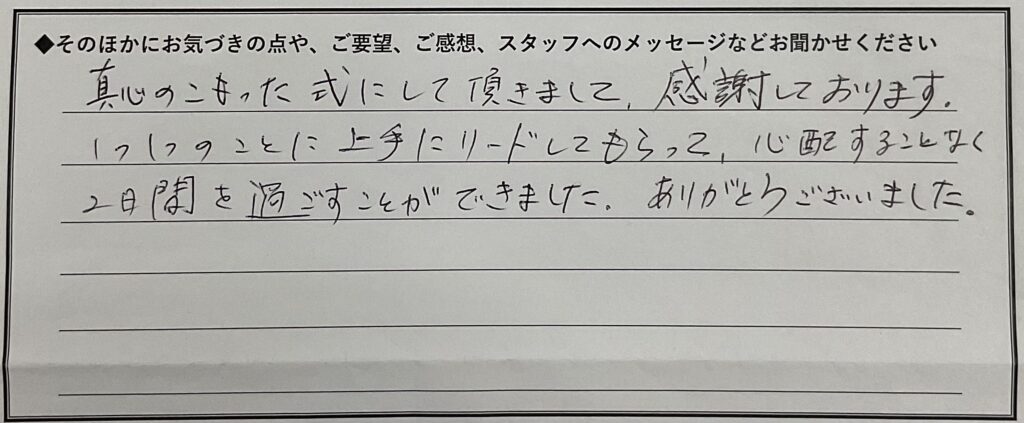 ◆そのほかにお気づきの点や、ご要望、ご感想、スタッフへのメッセージなどお聞かせください
真心のこもった式にして頂きまして、感謝しております。
1つ1つのことに上手にリードしてもらって、心配することなく
2日間を過ごすことができました。ありがとうございました。